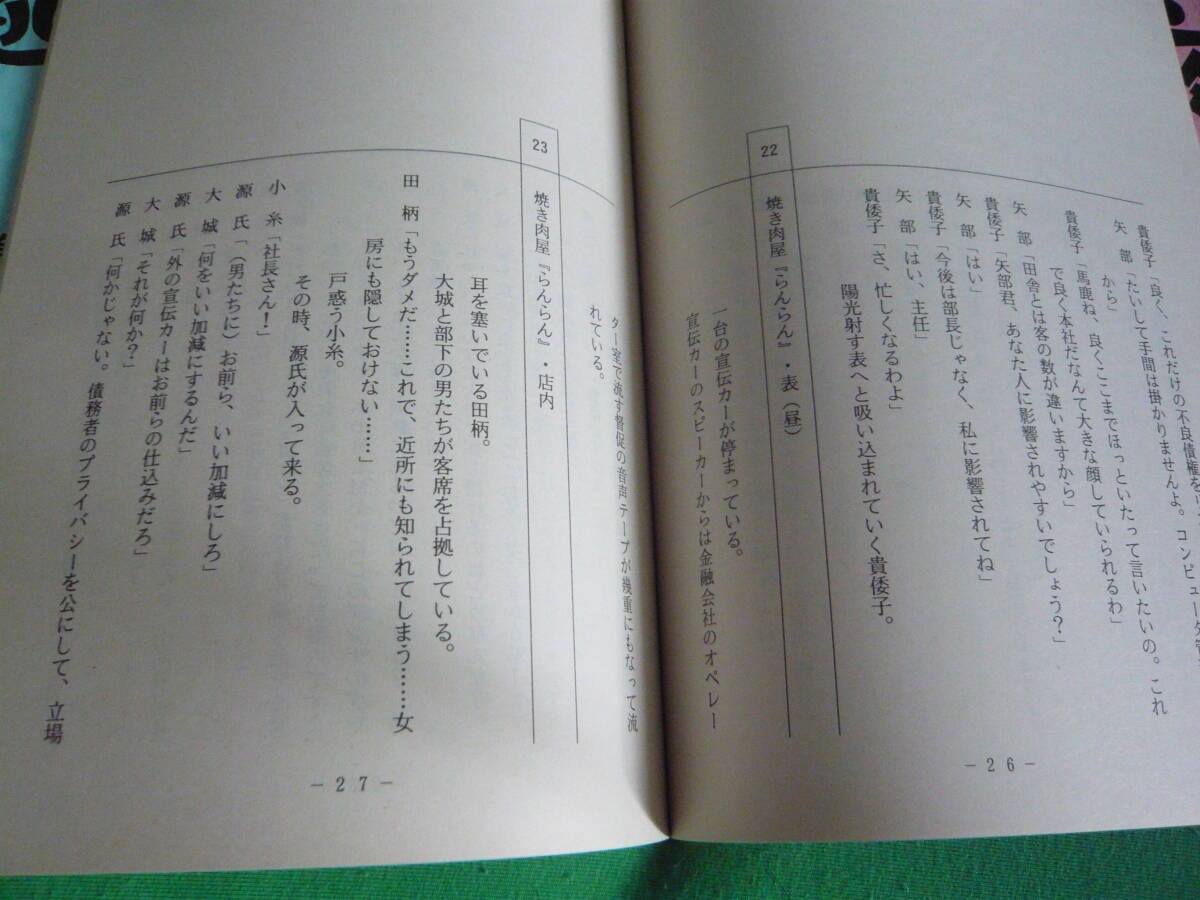 貴倭子「良く、これだけの不良債権を
矢 部「たいして手間は掛かりませんよ。コンピュータ管
から」
貴倭子「馬鹿ね、良くここまでほっといたって言いたいの。これ
で良く本社だなんて大きな顔していられるわ」
矢 部「田舎とは客の数が違いますから」
貴倭子「矢部君、あなた人に影響されやすいでしょう？」
矢 部「はい」
貴倭子「今後は部長じゃなく、私に影響されてね」
矢 部「はい、主任」
貴倭子「さ、忙しくなるわよ」
陽光射す表へと吸い込まれていく貴倭子。
22 焼き肉屋『らんらん』・表（昼）
一台の宣伝カーが停まっている。
宣伝カーのスピーカーからは金融会社のオペレー
ター室で流す督促の音声テープが幾重にもなって流
れている。
－26－
23 焼き肉屋『らんらん』・店内
耳を塞いでいる田柄。
大城と部下の男たちが客席を占拠している。
田 柄「もうダメだ……これで、近所にも知られてしまう……女
房にも隠しておけない……」
戸惑う小糸。
その時、源氏が入って来る。
小 糸「社長さん！」
源 氏「（男たちに）お前ら、いい加減にしろ」
大 城「何をいい加減にするんだ」
源 氏「外の宣伝カーはお前らの仕込みだろ」
大 城「それが何か？」
源 氏「何かじゃない。債務者のプライバシーを公にして、立場
－27－